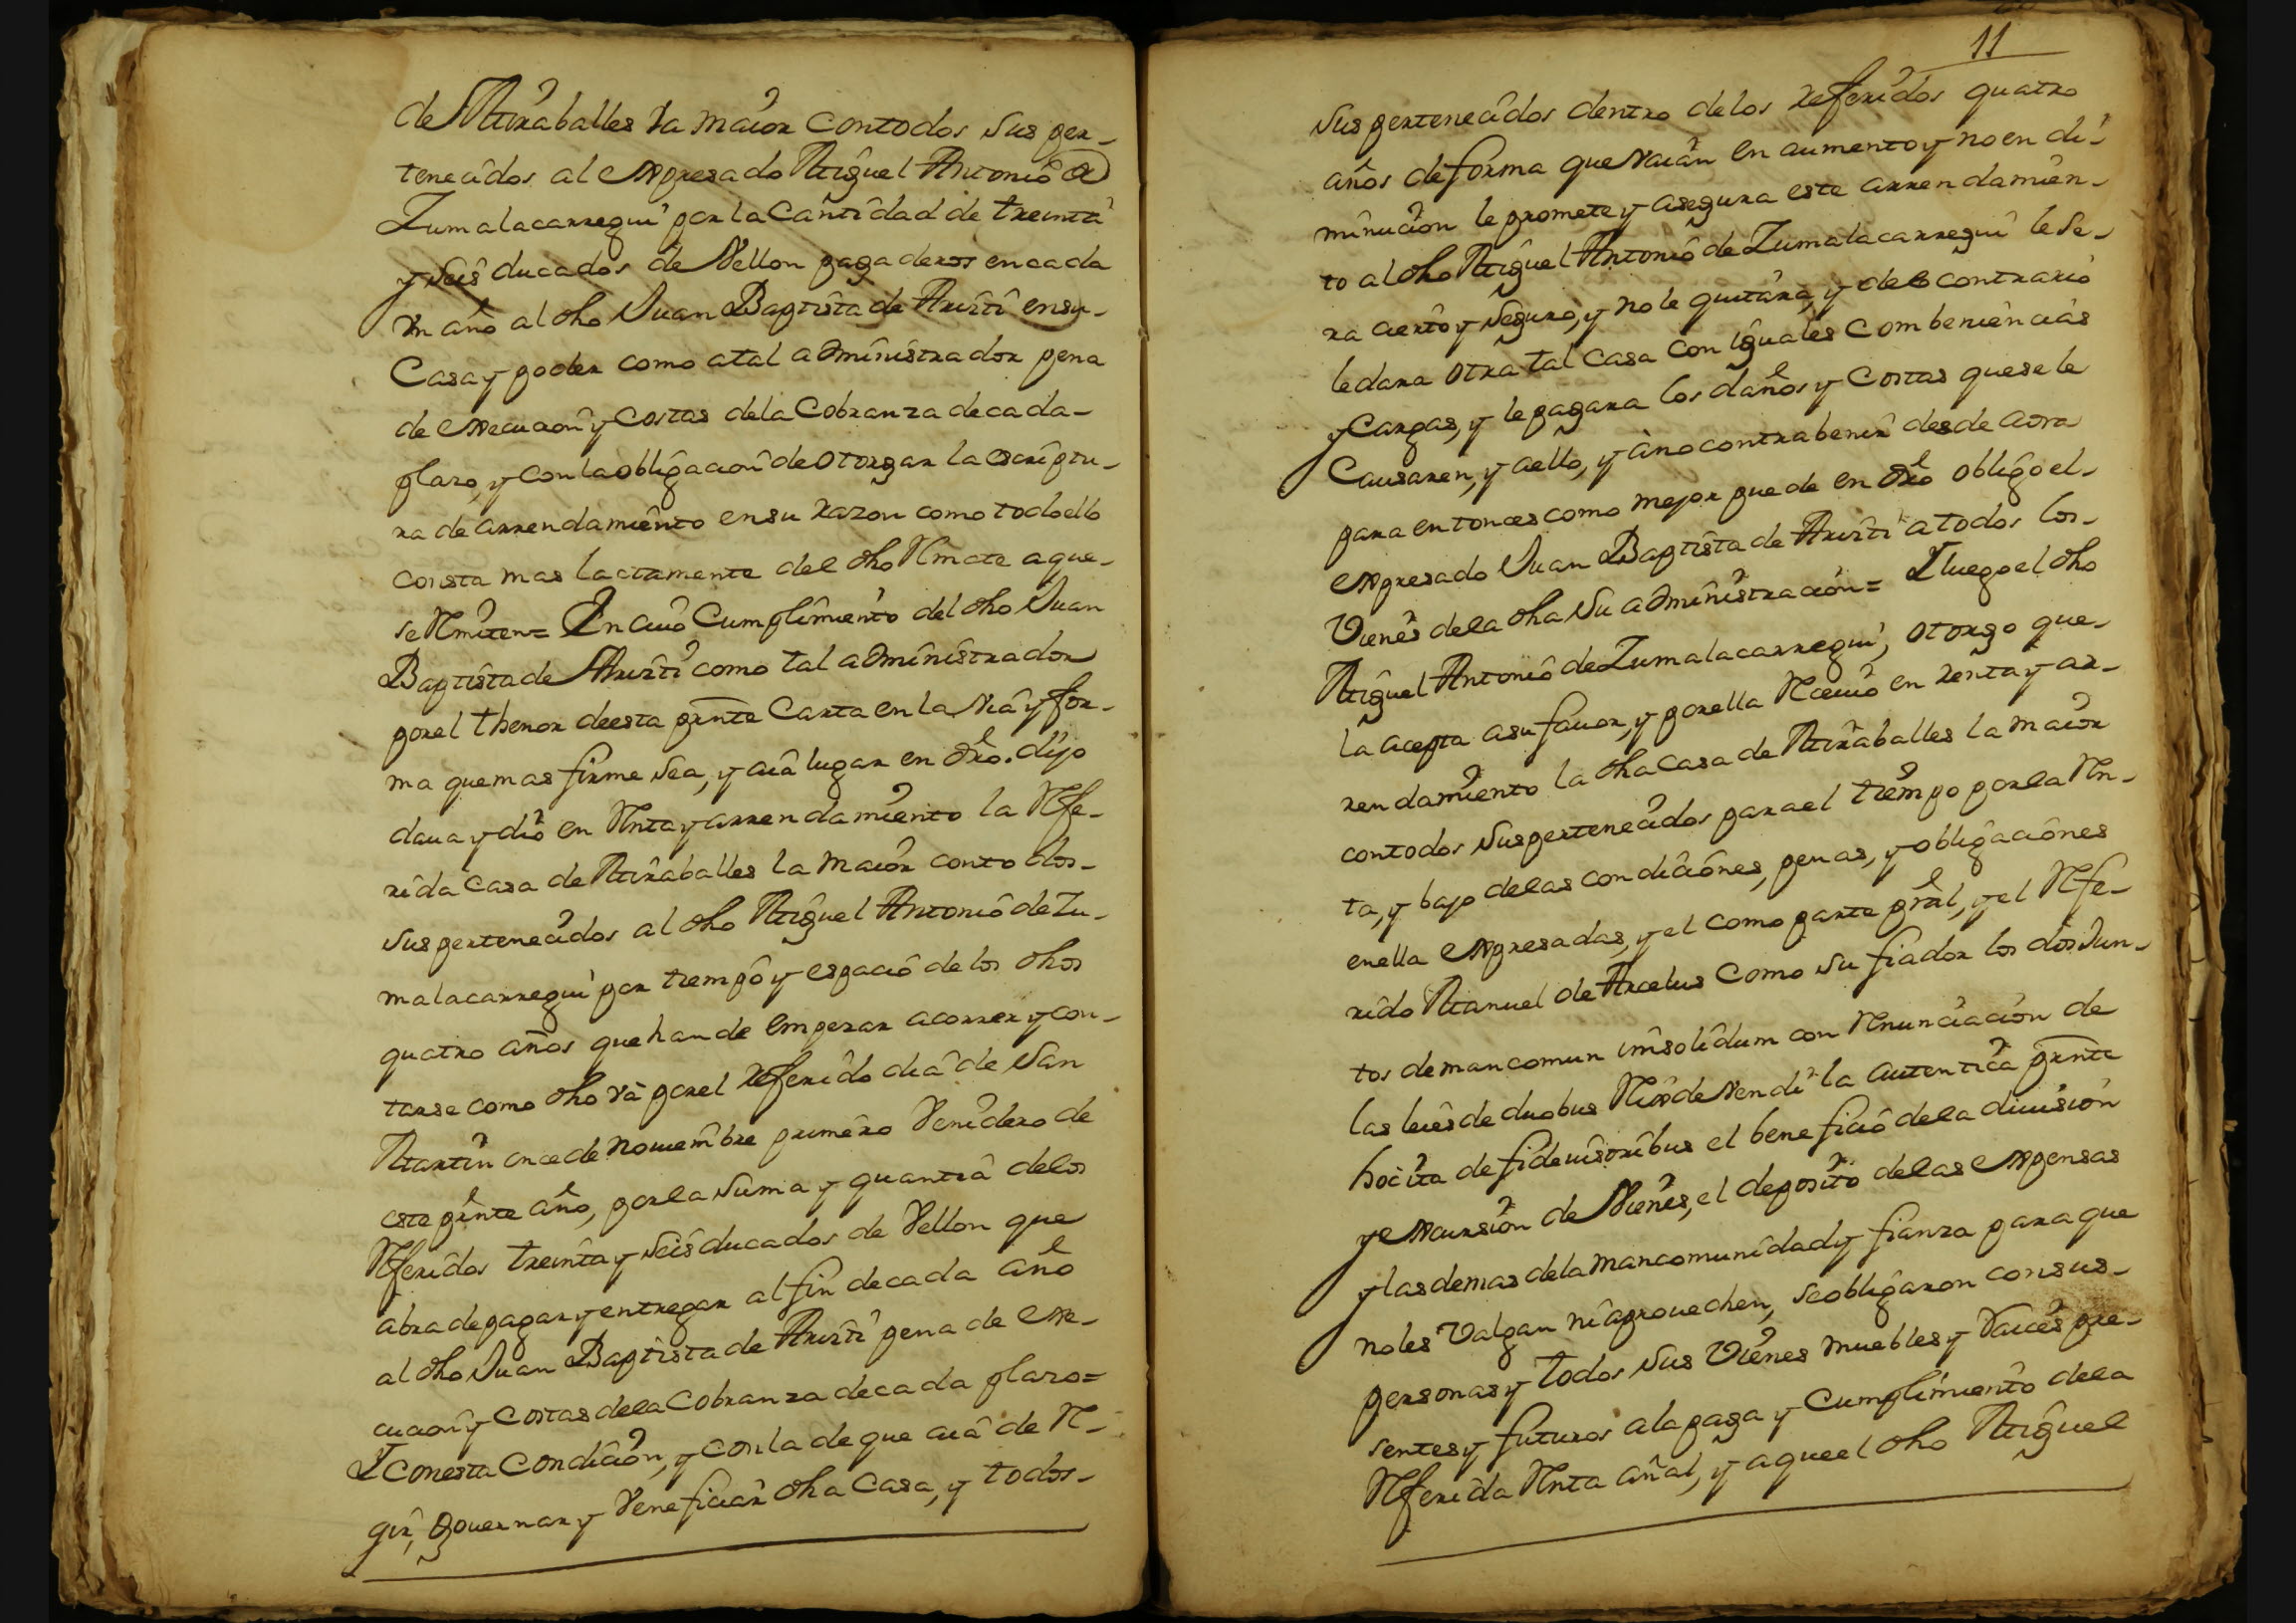 de Miraballes la maior con todos sus per-
tenecidos al expresado Miguel Antonio de
Zumalacarregui por la Cantidad de treinta
y seis ducados de Vellon pagaderos en cada
Vn año al dho Juan Baptista de Aristi en su-
Casa y poder como atal administrador pena
de execucion y costas dela Cobranza de cada-
plazo, y con la obligacion de otorgar la escriptu-
ra de arrendamiento en su razon como todo ello
consta mas lactamente del dho Rmate a que-
se Rmiten = En cuio Cumplimiento del dho Juan
Baptista de Aristi como tal administrador
por el thenor de esta prnte Carta en la via y for-
ma que mas firme sea, y aia lugar en dro. dijo
daua y dio en Rnta y arrendamiento la Rfe-
rida Casa de Miraballes la maior con todos-
sus pertenecidos al dho Miguel Antonio de Zu-
malacarregui por tiempo y espacio de los dhos
quatro años que han de empezar a correr y con-
tarse como dho va por el referido dia de San
Martin once de nouiembre primero Venidero de
este prnte año, por la suma y quantia delos
Rferidos treinta y seis ducados de Vellon que
abra de pagar y entregar al fin de cada año
al dho Juan Baptista de Aristi pena de exe-
cucion y costas dela Cobranza de cada plazo=
Y con esta Condicion, y con la de que aia de R-
gir, Gouernar y Veneficiar dha Casa, y todos-
11
sus pertenecidos dentro delos referidos quatro
años de forma que vaian en aumento y no en di-
minucion le promete y asegura este arrendamien-
to al dho Miguel Antonio de Zumalacarregui le se-
ra cierto y seguro, y no le quitara, y delo contrario
le dara otra tal casa con iguales Combeniencias
y Cargas, y le pagara los daños y Costas que se le
Causaren, y a ello, y a no contrabenir desde aora
para entonces como mejor puede en dro obligo el-
expresado Juan Baptista de Aristi a todos los-
Vienes dela dha su administracion = Y luego el dho
Miguel Antonio de Zumalacarregui, otorgo que-
la acepta a su fauor, y por ella Rceuio en renta y ar-
rendamiento la dha Casa de Miraballes la maior
con todos sus pertenecidos para el tiempo por la Rn-
ta, y bajo delas condiciones, penas, y obligaciones
en ella expresadas, y el como parte prâl, y el Rfe-
rido Manuel de Arcelus Como su fiador los dos Jun-
tos de mancomun imsolidum con Rnunciacion de
las leies de duobus Rix de vendi la autentica prnte
hocita de fideuisoribus el beneficio dela diuision
y excursion de Vienes, el deposito delas expensas
y las demas dela mancomunidad y fianza para que
no les Valgan ni aprouechen, se obligaron con sus-
personas y todos sus Vienes muebles y Raices pre-
sentes y futuros ala paga y Cumplimiento dela
Rferida Rnta añal, y aque el dho Miguel